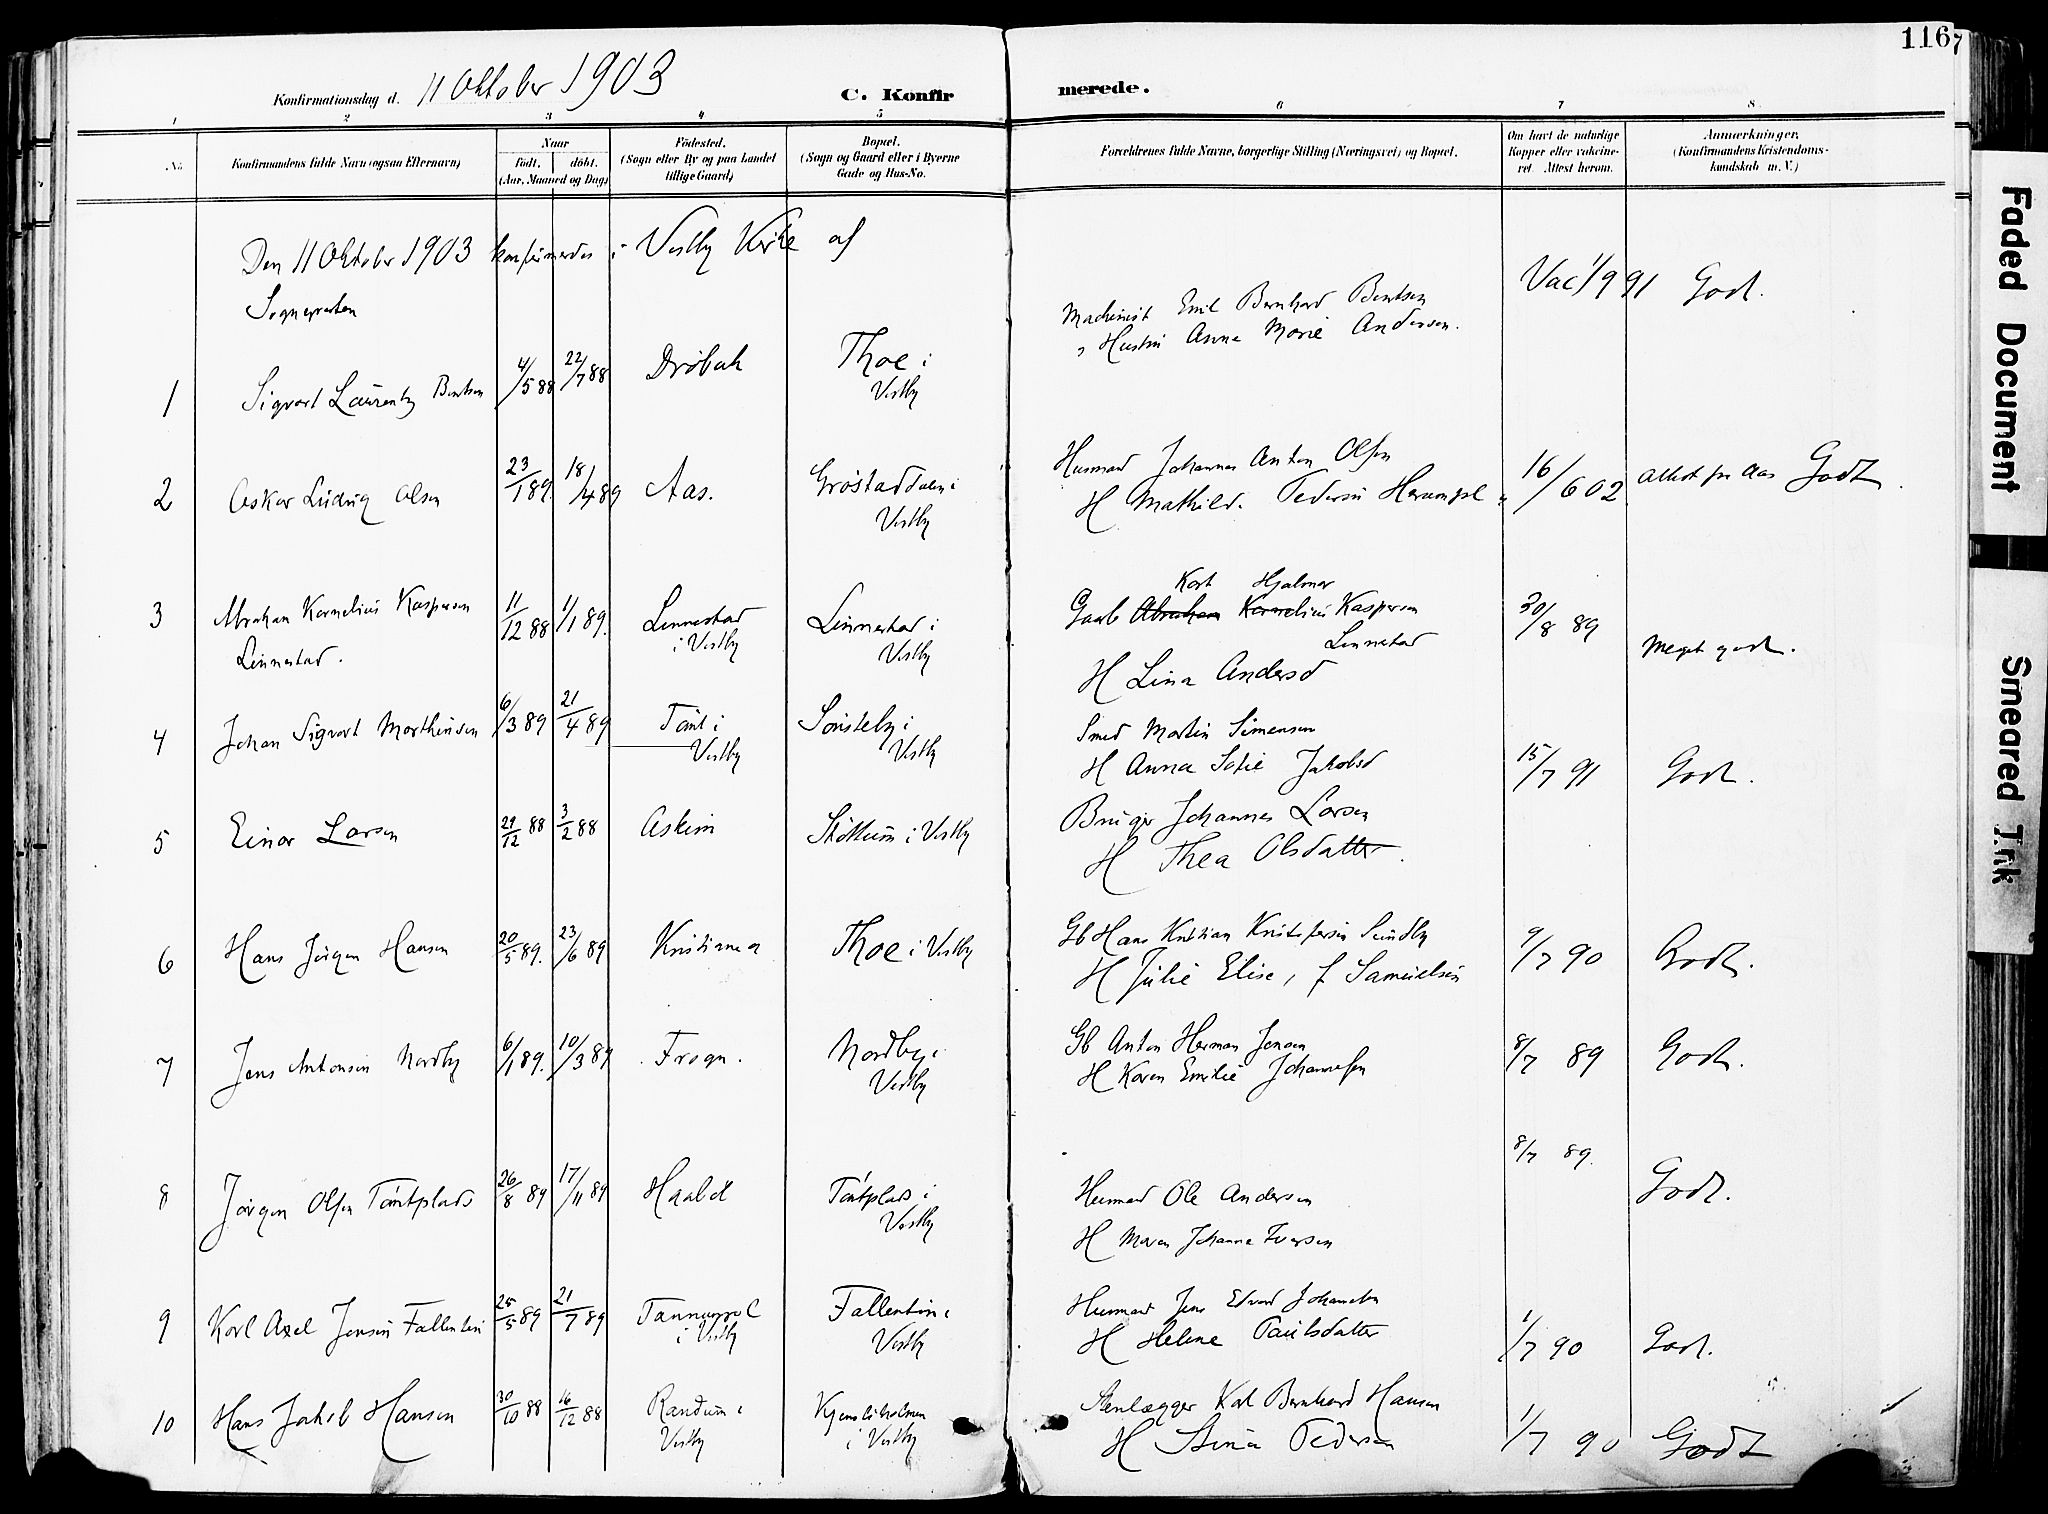 116
Konfirmationsdag d. 11 Oktober 1903
C. Konfirmerede.
1 2 3 4 5 6 7 8
No.
Konfirmandens fulde Navn (ogsaa Efternavn)
Naar
födt. döbt.
(Aar, Maaned og Dag)
Födested.
(Sogn eller By og paa Landet
tillige Gaard)
Bopæl.
(Sogn og Gaard eller i Byerne
Gade og Hus-No.
Forældrenes fulde Navne, borgerlige Stilling (Næringsvei) og Bopæl.
Om havt de naturlige
Kopper eller vakcine-
ret. Attest herom.
Anmærkninger.
(Konfirmandens Kristendoms-
kundskab m. V.)
Den 11 Oktober 1903 konfirmerdes i Vestby Kirke af
Sognepresten
1 Sigvart Laurentz Berntsen 4/5 88 22/7 88 Drøbak Thoe i
Vestby
Machinist Emil Bernhard Berntsen
Hustru Anna Marie Andersen.
Vac 1/9 91 Godt.
2 Oskar Ludvig Olsen 23/1 89. 18/4 89 Aas. Grøstaddalen i
Vestby
Husmand Johannes Anton Olsen
H Mathild. Pedersen
16/6 02. Attest fra Aas Godt.
3 Abraham Kornelius Kaspersen
Linnestad.
11/12 88 1/1 89. Linnestad
i Vestby
Linnestad i
Vestby
Karl Hjalmar
Gaarb Abraham Kornelius Kaspersen
Linnestad
H Lina Andersd
30/8 89 Meget godt.
4 Johan Sigvart Marthinsen 6/3 89 21/4 89 Tómt i
Vestby
Sønsteby i
Vestby
Smed Martin Simensen
H Anna Sofie Jakobsd
15/7 91 Godt.
5 Einar Larsen 29/12 88 3/2 88 Askim Støttum i Vestby
Bruger Johannes Larsen
H Thea Olsdatter.
6 Hans Jørgen Hansen 20/5 89. 23/6 89 Kristiania Thoe i Vestby
Gb Hans Kristian Kristofersen Sundby
H Julie Elise, f Samuelsen
9/7 90 Godt.
7 Jens Antonsen Nordby 6/1 89. 10/3 89 Frogn. Nordby i
Vestby
Gb Anton Herman Jensen
H Karen Emilie Johannesen
8/7 89 Godt.
8 Jørgen Olsen Tómtplads 26/8 89 17/11 89 Haabøl Tómtplads i
Vestby
Husmand Ole Andersen
H Maren Johanne Iversen
8/7 89. Godt.
9 Karl Axel Jensen Fallentin 25/5 89 21/7 89
i Vestby
Fallentin i
Vestby
Husmand Jens Edvard Johansen
H Helene Paulsdatter
1/7 90 Godt.
10 Hans Jakob Hansen 30/10 88 16/12 88 Randum i
Vestby
i Vestby
Stenlægger Karl Bernhard Hansen
H Stina Pedersen
1/7 90 Godt
Faded Document
Smeared Ink